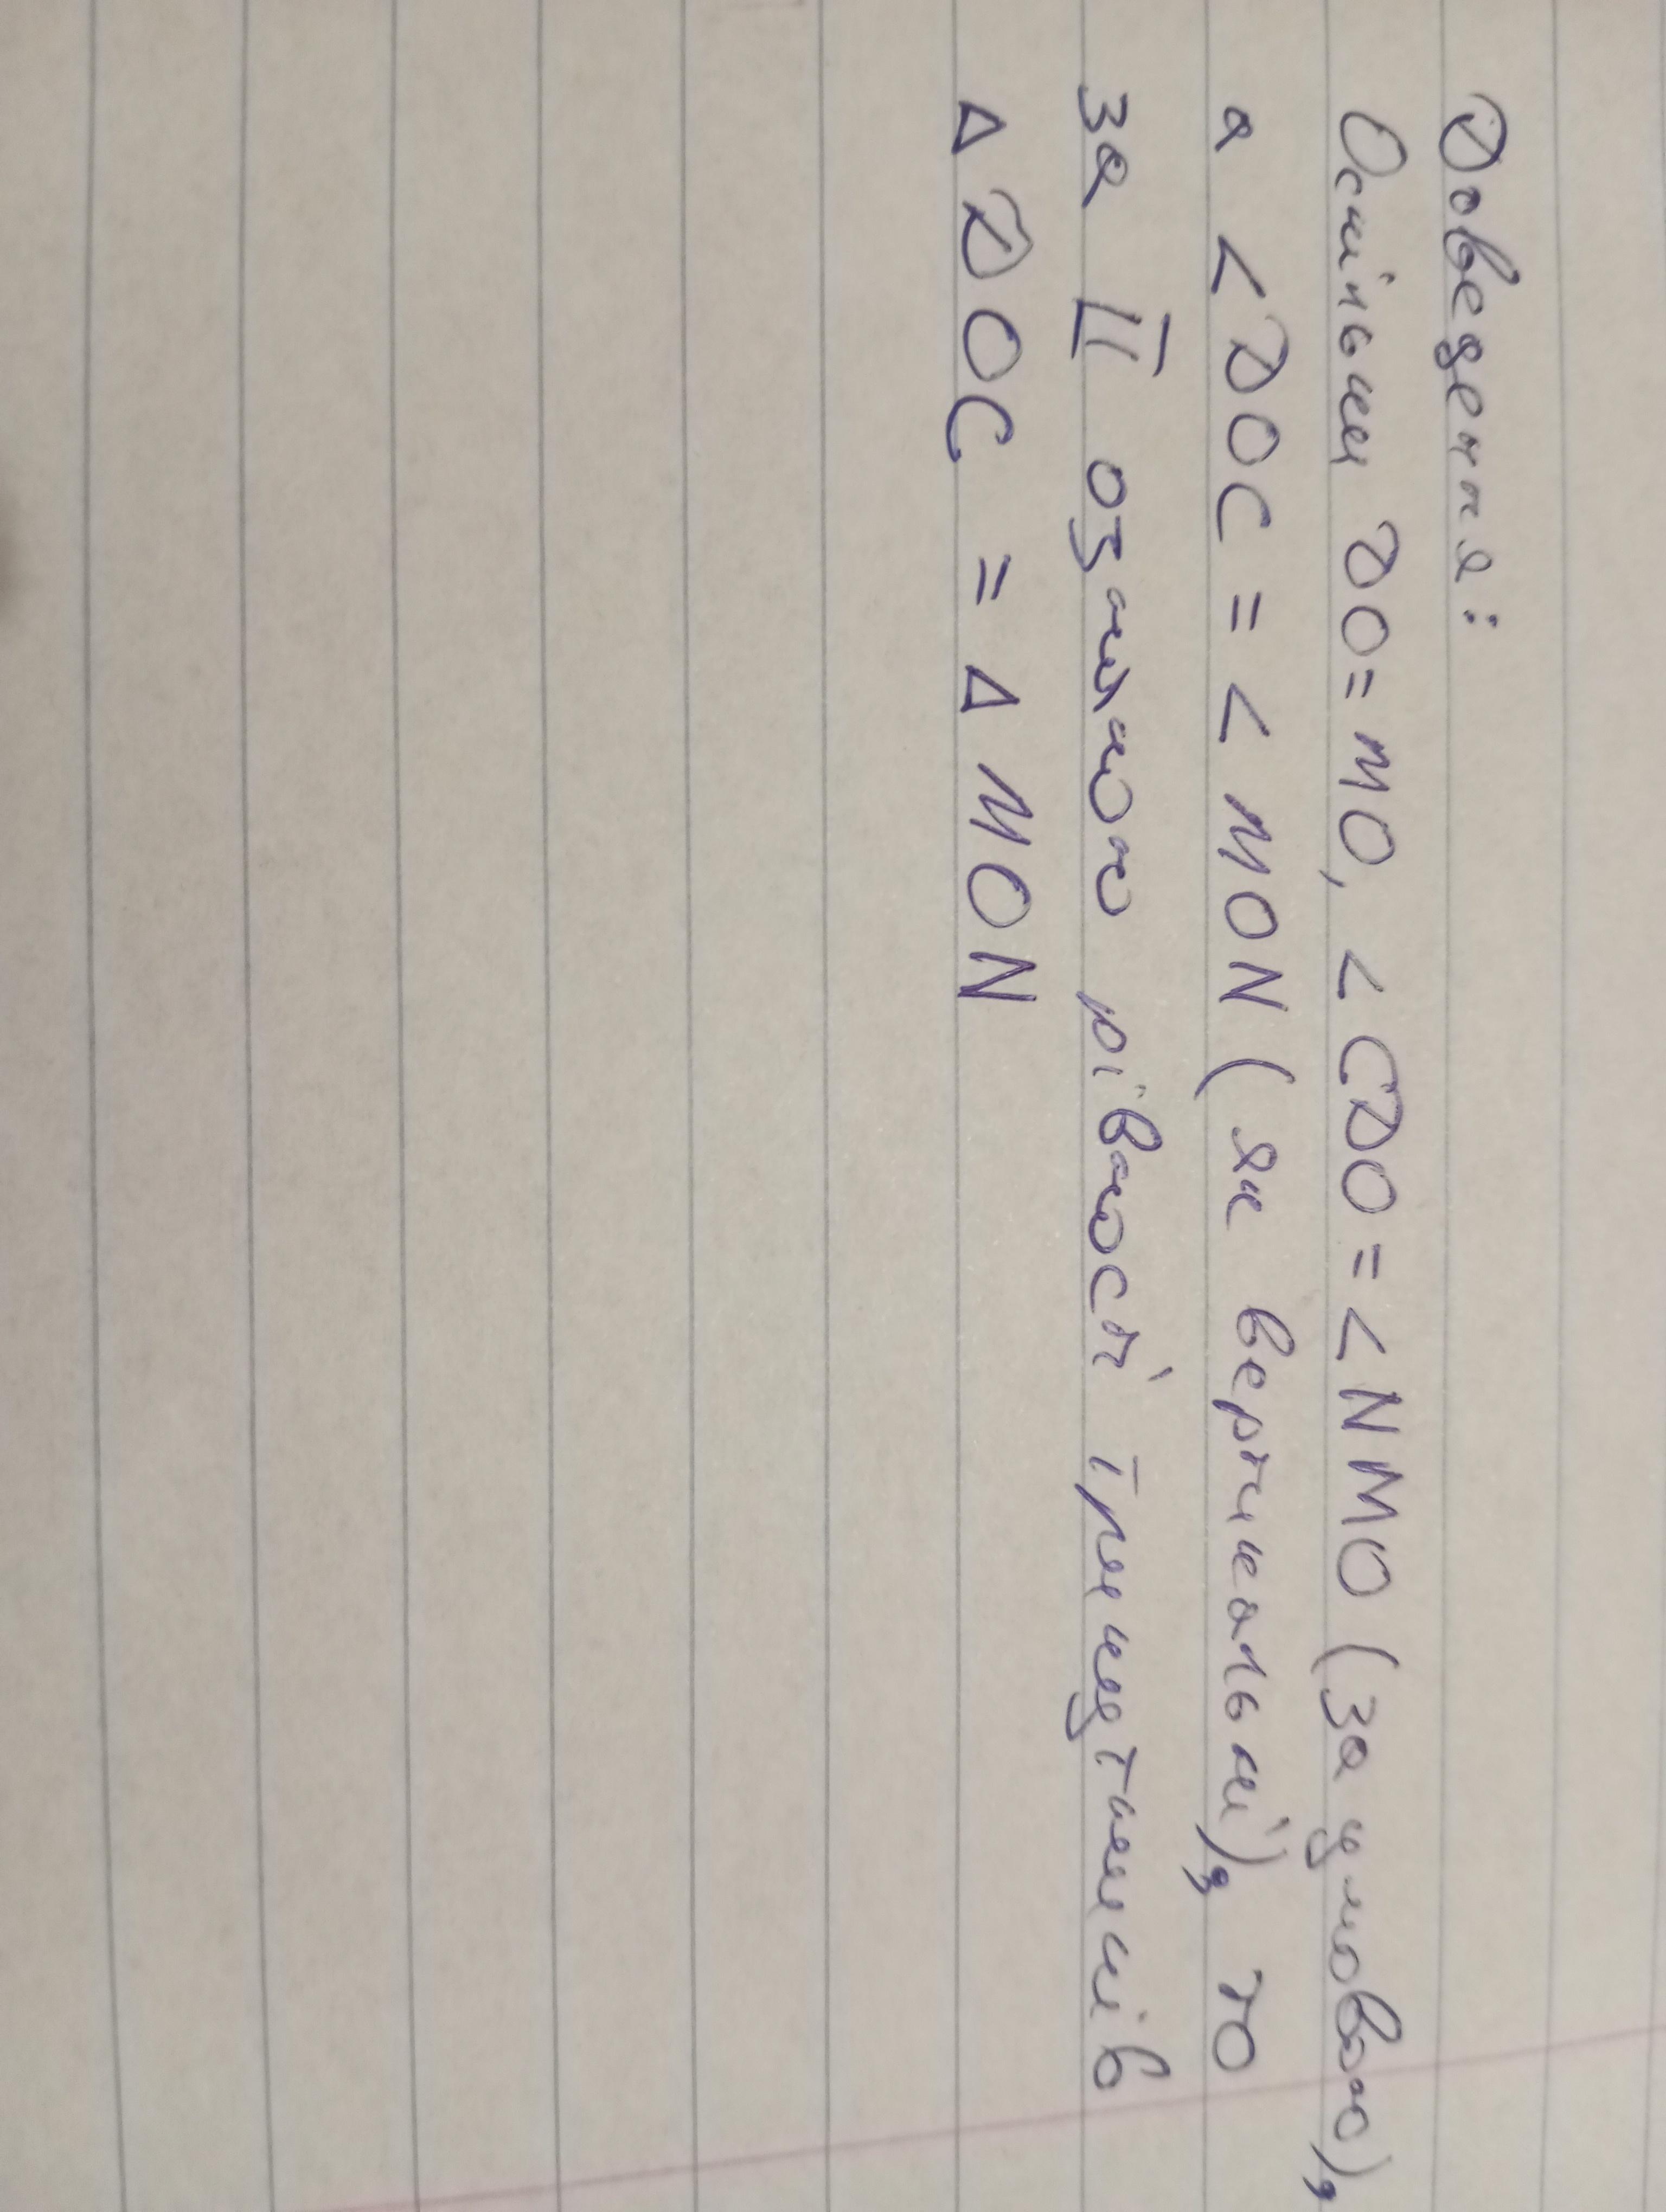 Доведення:
Оскільки DO = MO, < CDO = < NMO (за умовою),
а < DOC = < MON (як вертикальні), то
за II ознакою рівності трикутників
Δ DOC = Δ MON